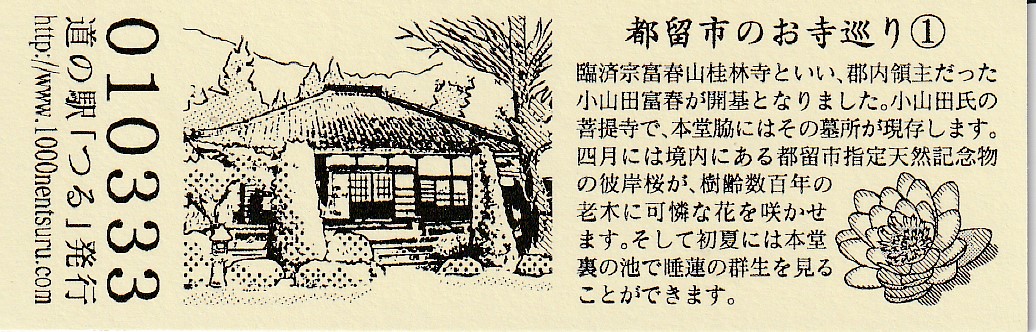 都留市のお寺巡り①
臨済宗富春山桂林寺といい、郡内領主だった
小山田富春が開基となりました。小山田氏の
菩提寺で、本堂脇にはその墓所が現存します。
四月には境内にある都留市指定天然記念物
の彼岸桜が、樹齢数百年の
老木に可憐な花を咲かせ
ます。そして初夏には本堂
裏の池で睡蓮の群生を見る
ことができます。
010333
道の駅「つる」発行
http://www.1000nentsuru.com